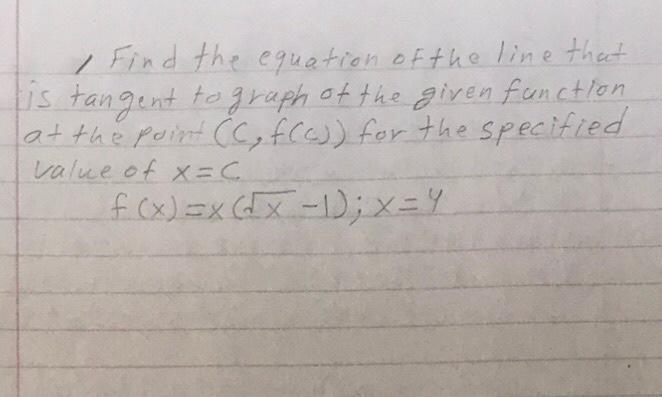 1 Find the equation of the line that
is tangent to graph of the given function
at the point (C, f(c)) for the specified
value of x=C
f(x)=x(√x -1); x=4